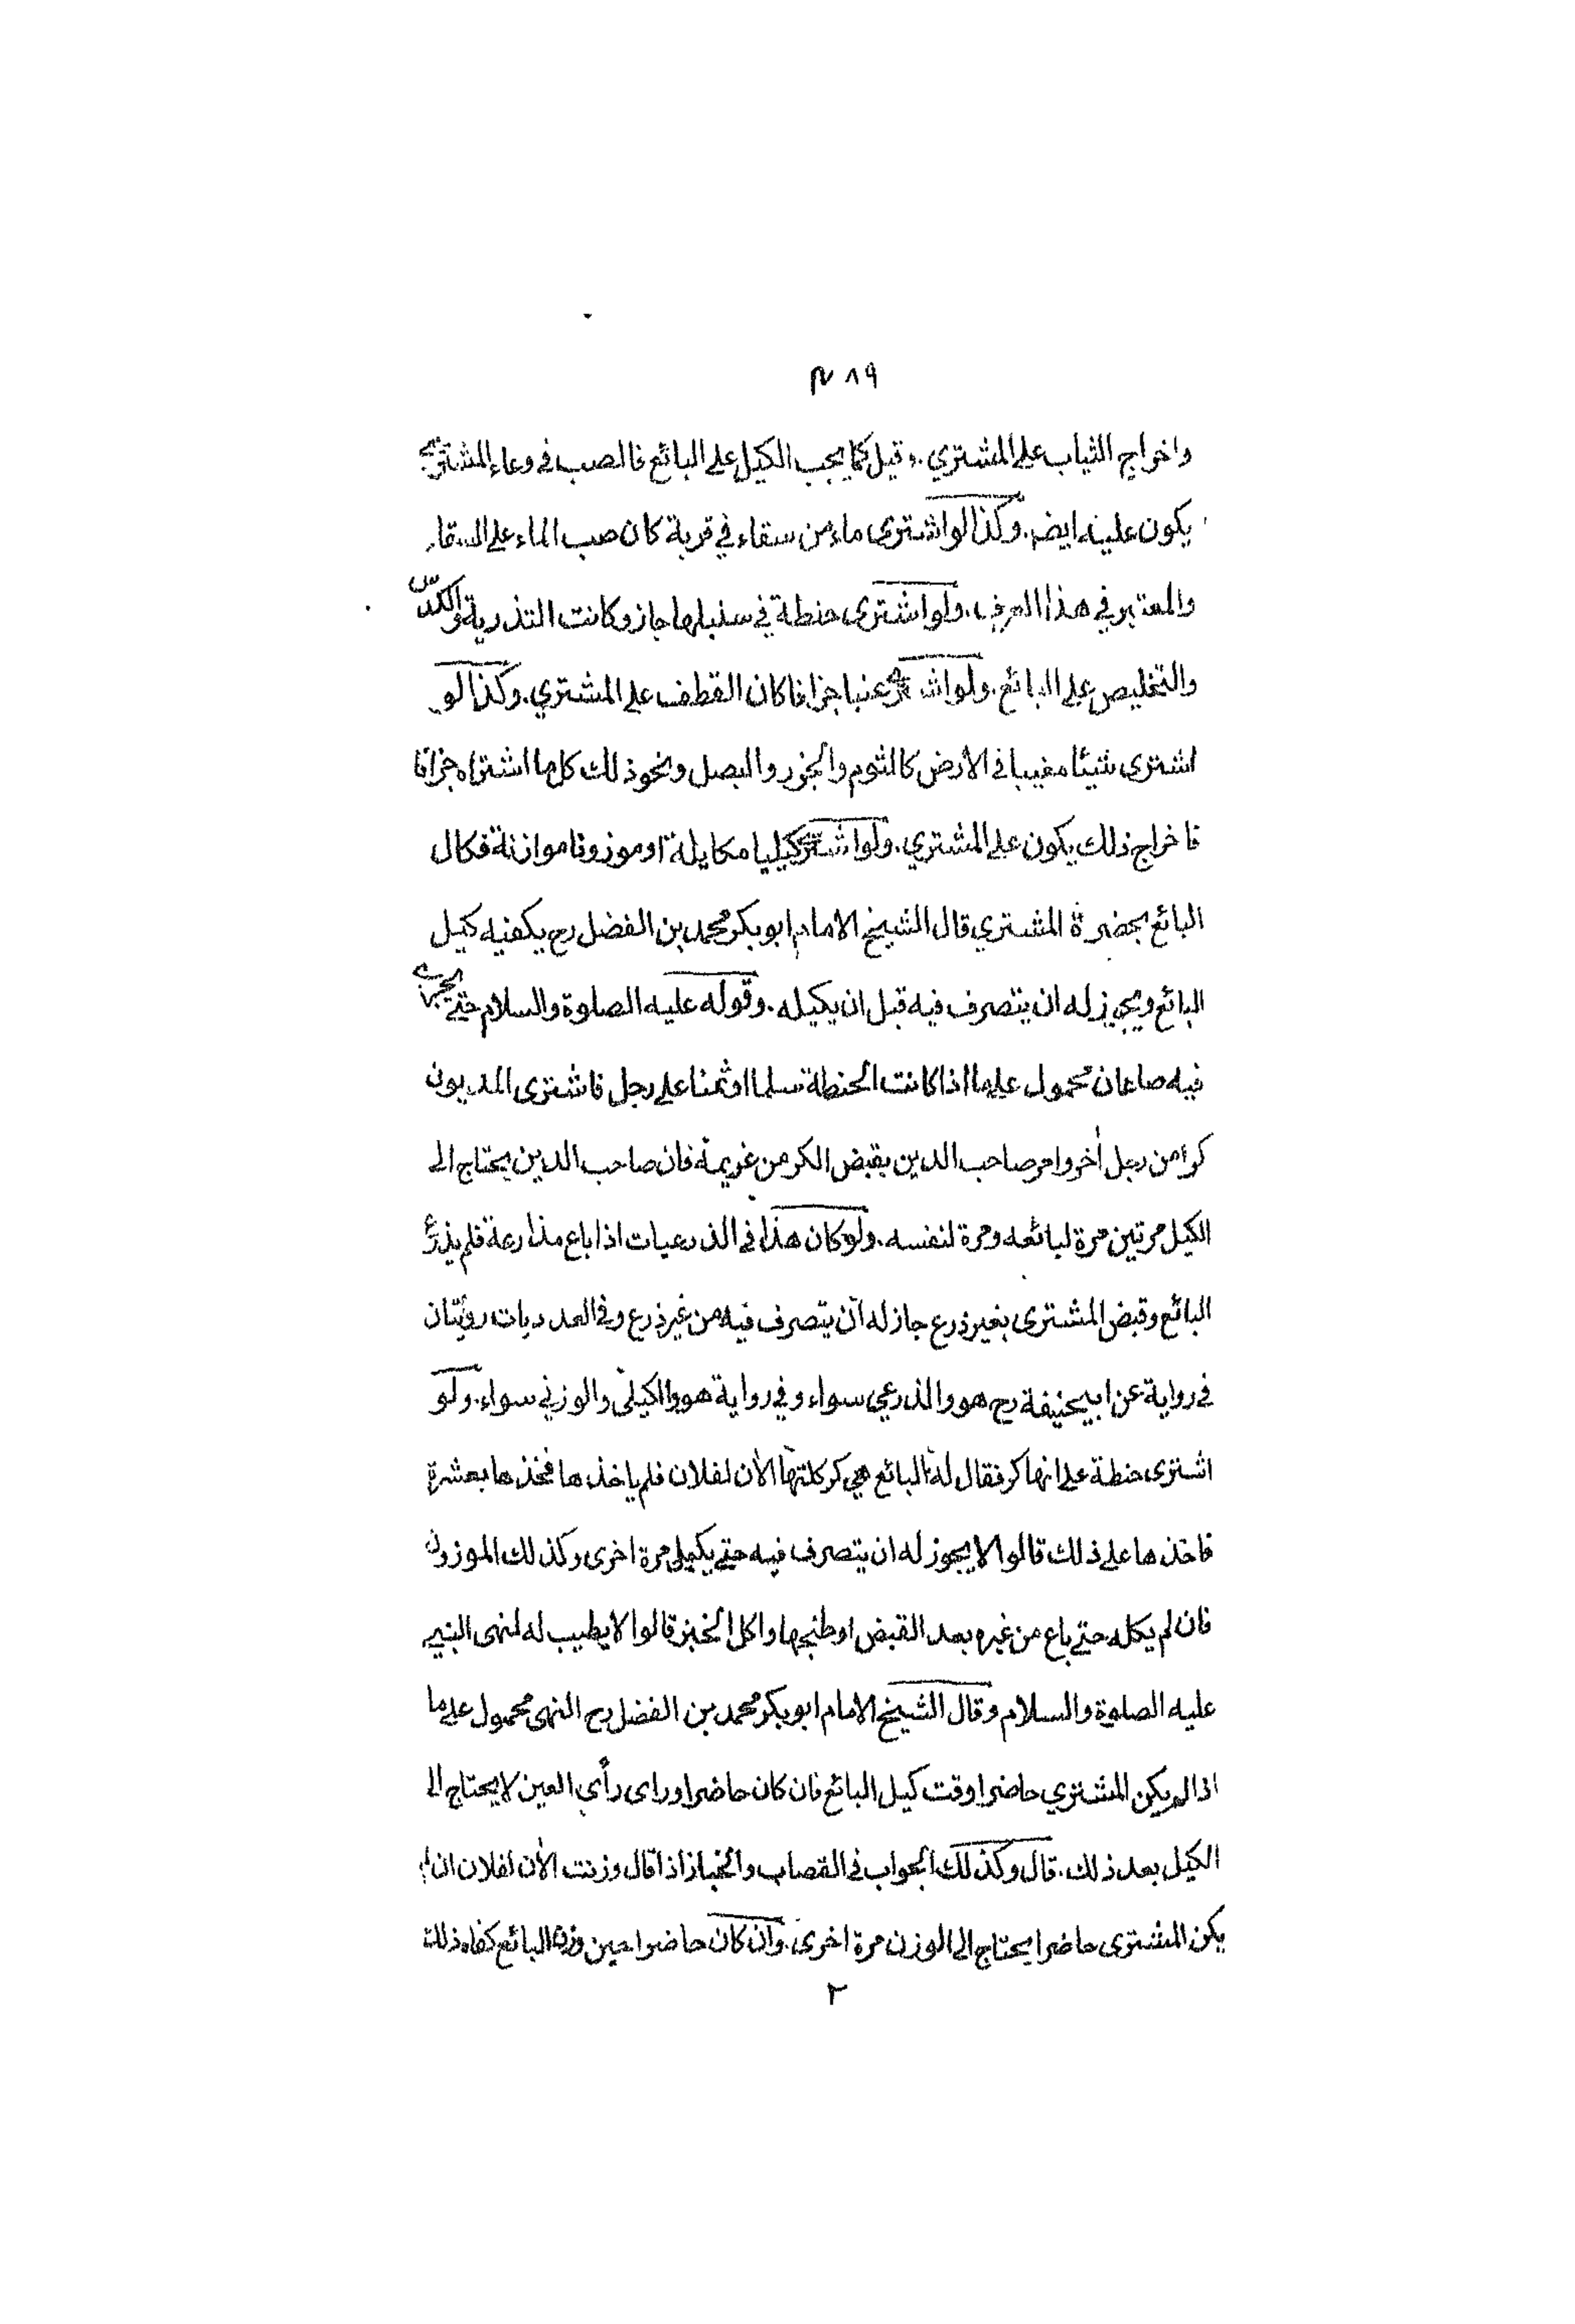 ٤٨٩
واخراج الثياب على المشتري. وقيل كما يجب الكيل على البائع فالصب في وعاء المشتري
يكون عليه ايضا. وكذا لو اشترى ماء من سقاء في قربة كان صب الماء على السقاء
والمعتبر في هذا العرف. ولو اشترى حنطة في سنبلها جاز وكانت التذرية والكدس
والتخليص على البائع. ولو اشترى عنبا جزافا كان القطف على المشتري. وكذا لو
اشترى شيئا مغيبا في الارض كالثوم والجزر والبصل ونحو ذلك كل ما اشتراه جزافا
فاخراج ذلك يكون على المشتري. ولو اشترى كيليا مكايلة او موزونا موازنة فكال
البائع بحضرة المشتري قال الشيخ الامام ابو بكر محمد بن الفضل رح يكفيه كيل
البائع ويجوز له ان يتصرف فيه قبل ان يكيله. وقوله عليه الصلوة والسلام حتى يجري
فيه صاعان محمول على ما اذا كانت الحنطة سلما او ثمنا على رجل فاشترى المديون
كرا من رجل أخر وامر صاحب الدين بقبض الكر من غريمه فان صاحب الدين يحتاج الى
الكيل مرتين مرة لبائعه ومرة لنفسه. ولو كان هذا في الذرعيات اذا باع مذارعة فلم يذرع
البائع وقبض المشترى بغير ذرع جاز له ان يتصرف فيه من غير ذرع وفي العدديات روايتان
في رواية عن ابيحنيفة رح هو والذرعي سواء وفي رواية هو والكيلي والوزني سواء. ولو
اشترى حنطة على انها كر فقال له البائع هي كر كلتها الأن لفلان فلم ياخذها فخذها بعشرة
فاخذها على ذلك قالوا لا يجوز له ان يتصرف فيه حتى يكيل مرة اخرى وكذلك الموزون
فان لم يكله حتى باع من غيره بعد القبض او طبخها واكل الخبز قالوا لا يطيب له لنهى النبي
عليه الصلوة والسلام وقال الشيخ الامام ابو بكر محمد بن الفضل رح النهى محمول على ما
اذا لم يكن المشتري حاضرا وقت كيل البائع فان كان حاضرا وراى رأي العين لا يحتاج الى
الكيل بعد ذلك. قال وكذلك الجواب في القصاب والخباز اذا قال وزنت الأن لفلان ان لم
يكن المشترى حاضرا يحتاج الى الوزن مرة اخرى. وان كان حاضرا حين وزن البائع كفاه ذلك
٢